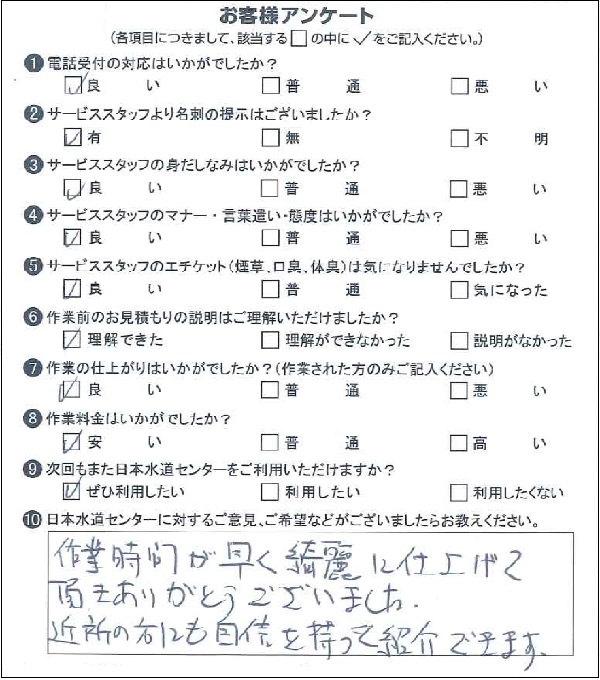 お客様アンケート
(各項目につきまして、該当する□の中に✓をご記入ください。)
❶電話受付の対応はいかがでしたか?
☑良い □普通 □悪い
❷サービススタッフより名刺の提示はございましたか?
☑有 □無 □不明
❸サービススタッフの身だしなみはいかがでしたか?
☑良い □普通 □悪い
❹サービススタッフのマナー・言葉遣い・態度はいかがでしたか?
☑良い □普通 □悪い
❺サービススタッフのエチケット(煙草、口臭、体臭)は気になりませんでしたか?
☑良い □普通 □気になった
❻作業前のお見積もりの説明はご理解いただけましたか?
☑理解できた □理解ができなかった □説明がなかった
❼作業の仕上がりはいかがでしたか?(作業された方のみご記入ください)
☑良い □普通 □悪い
❽作業料金はいかがでしたか?
☑安い □普通 □高い
❾次回もまた日本水道センターをご利用いただけますか?
☑ぜひ利用したい □利用したい □利用したくない
❿日本水道センターに対するご意見、ご希望などがございましたらお教えください。
作業時間が早く綺麗に仕上げて
頂きありがとうございました.
近所の方にも自信を持って紹介できます.